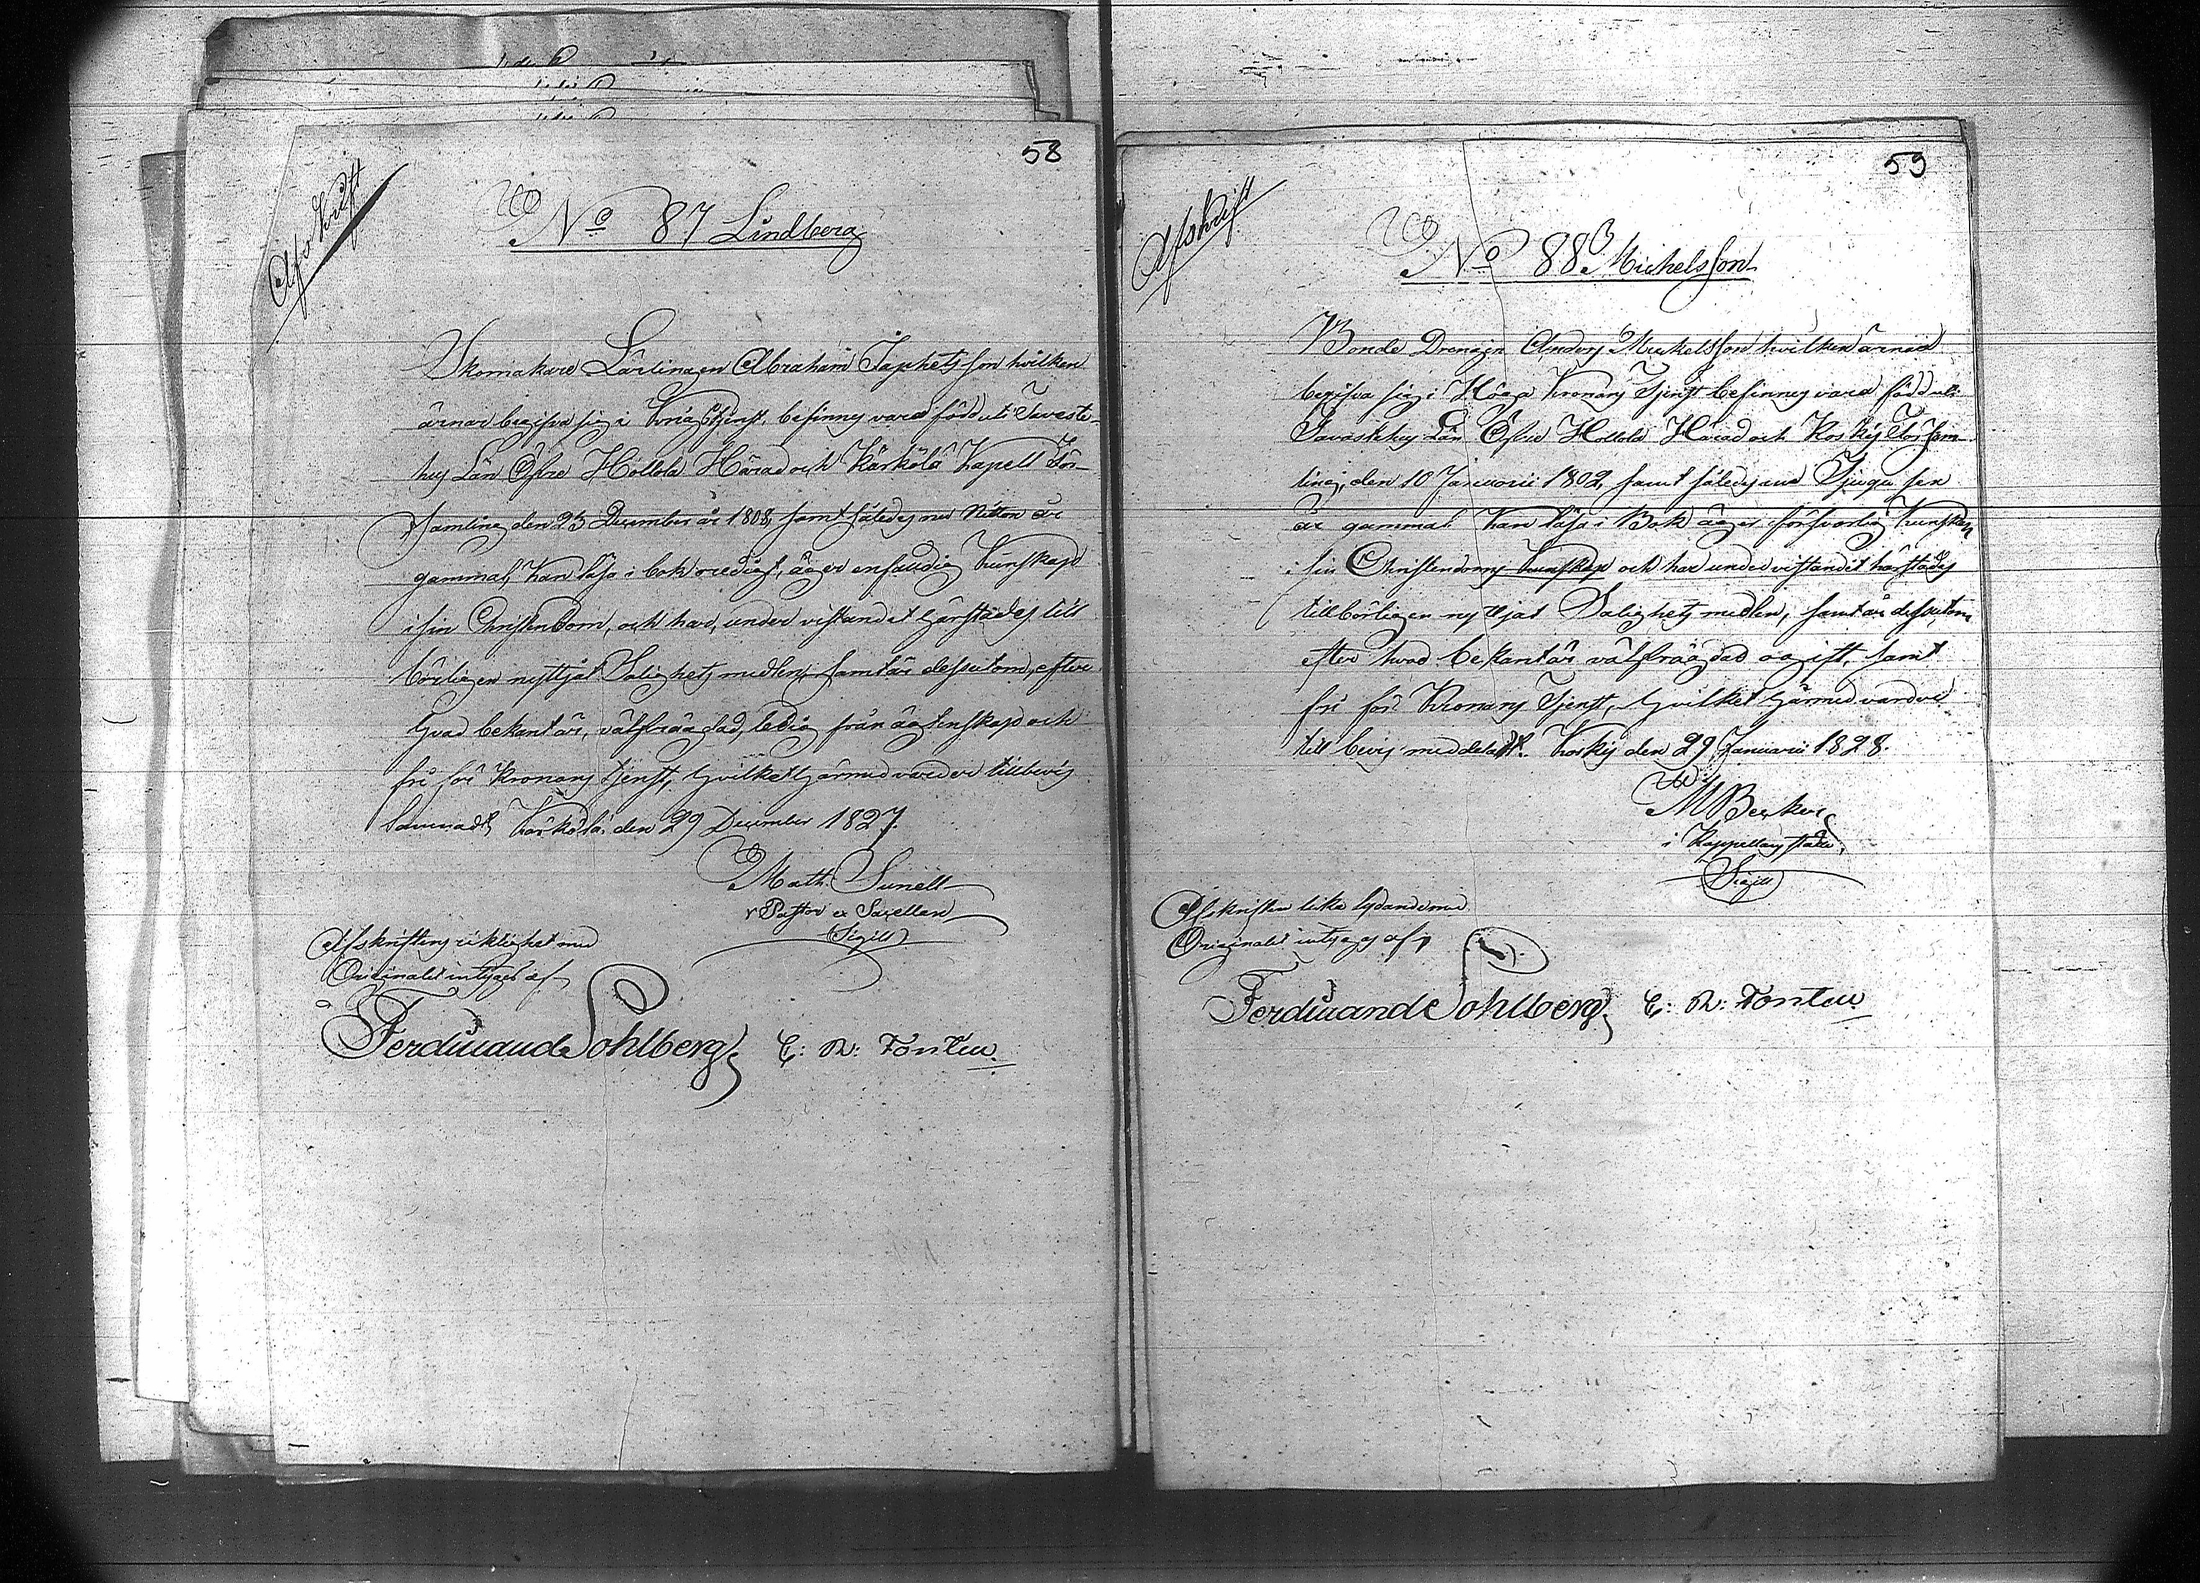 58
Afskrift
No 87 Lindberg
Skomakare Lärlingen Abraham Japhetsson hvilken
ärnar begifva sig i Krigstjenst, befinnes vara född uti Taveste-
hus Län Öfre Hollola Härad och Kärkölä Kapell För-
samling den 25 December år 1808, samt således nu Nitton år
gammal, kan läsa i bok oredigt, äger enfaldig Kunskap
i sin Christendom, och har, under vistandet härstädes till
börligen nyttjat Salighets medlen, samt är dessutom, efter
hvad bekant är, välfrägdad, ledig från ägtenskap och
fri för Kronans tjenst, hvilket härmedvarder till bevis
lemnadt Kärkölä den 29 December 1827.
Math. Sunell
v Pastor et Sacellan
(Sigill)
Afskriftens riktighet med
Originalet intygas af
Ferdinand Sohlberg, C: R: Tonteu.
59
Afskrift
No 88 Michelsson
Bonde Drengen Anders Mickelsson hvilken ärnar
begifva sig i Höga Kronans Tjenst befinnes vara född uti
Tavastehus Län Öfre Hollola Härad och Koskis Församling
ling, den 10 Januarii 1802, samt således nu Tjugu sex
år gammal kan läsa i Bok äger försvarlig Kunskap
i sin Christendoms kunskap och har under vistandet härstädes
tillbörligen nyttjat Salighets medlen, samt är dessutom,
efter hvad bekant är välfrägdad ogift, samt
fri för Kronans Tjenst, hvilket härmed varder
till bevis meddelat. Koskis den 29 Januarii 1828.
M Becker
i Kappellans ställe.
(Sigill)
Afskriften lika lydande med
Originalet intygas af
Ferdinand Sohlberg, C: R: Tonteu